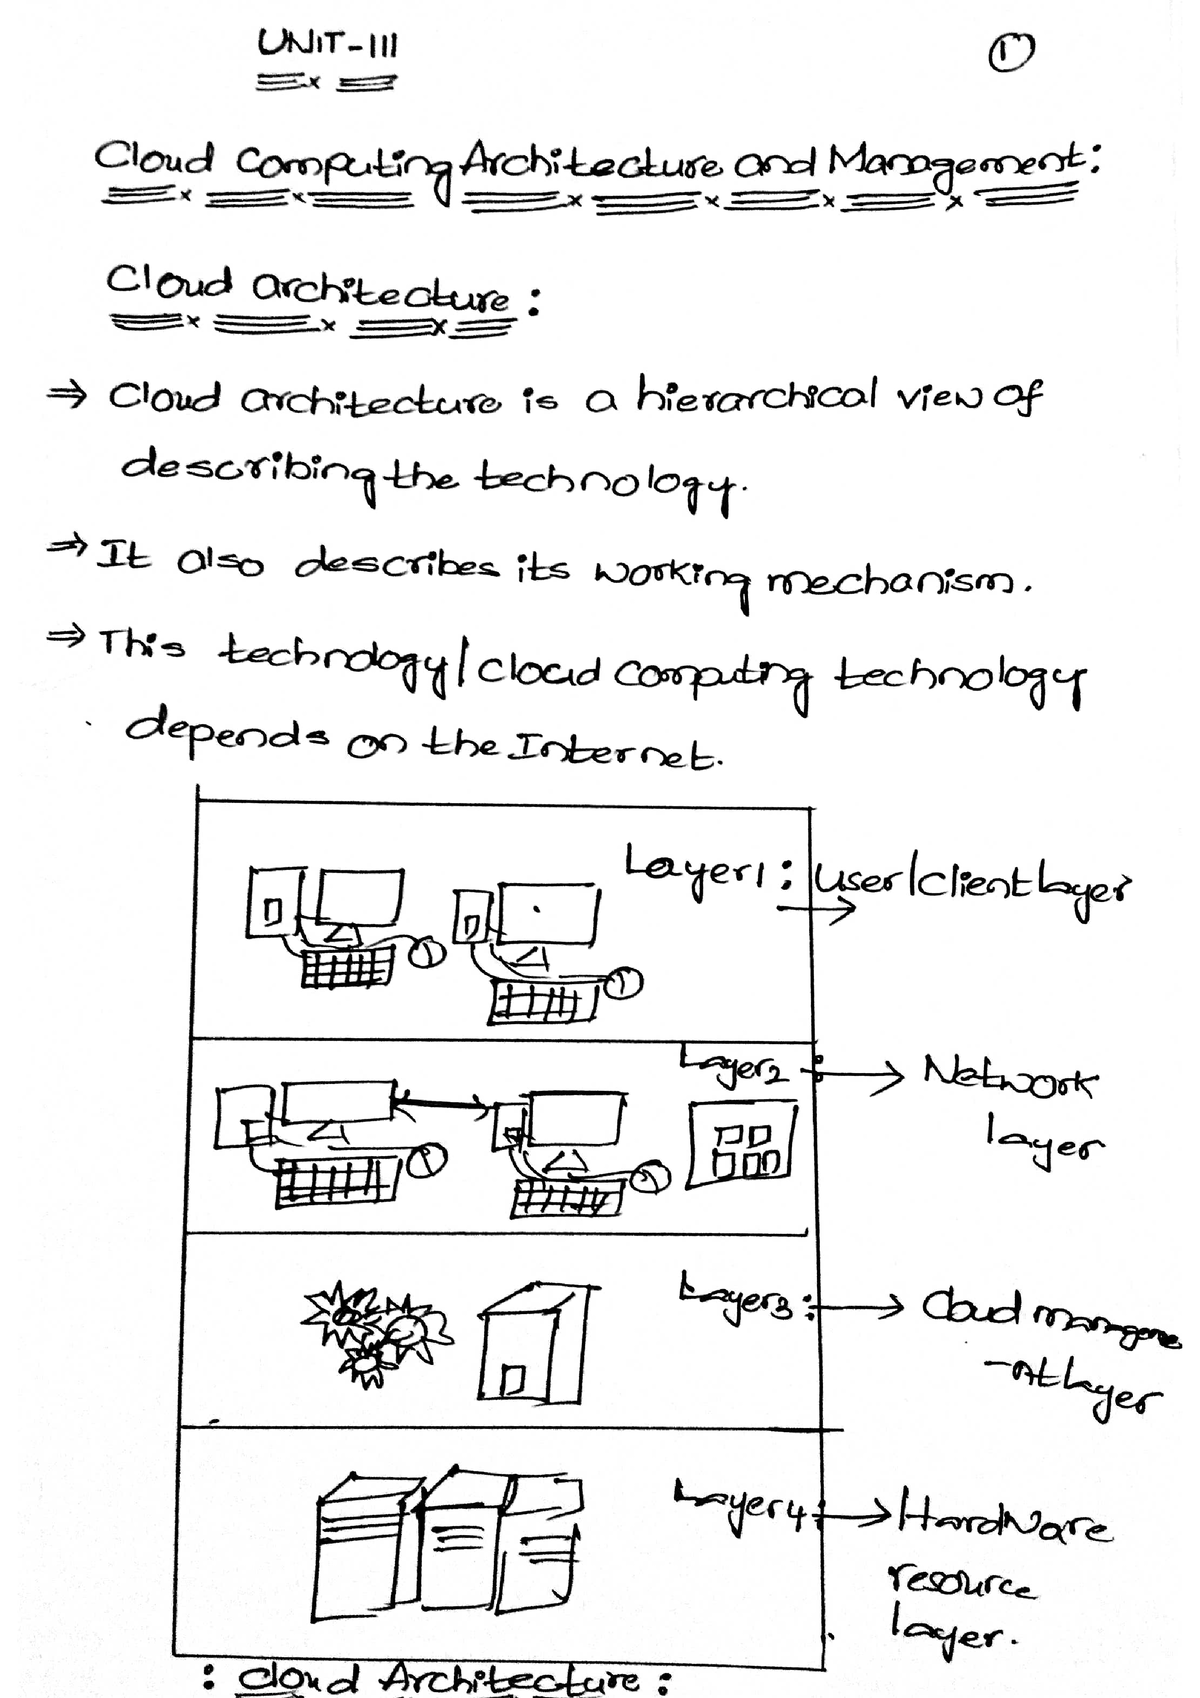 UNIT-III
1
Cloud Computing Architecture and Management:
Cloud architecture:
⇒ Cloud architecture is a hierarchical view of
describing the technology.
⇒ It also describes its working mechanism.
⇒ This technology/cloud computing technology
depends on the Internet.
Layer1: User/client layer
Layer2 : → Network
layer
Layer3: → Cloud manageme
-nt layer
Layer4: → Hardware
resource
layer.
: cloud Architecture: